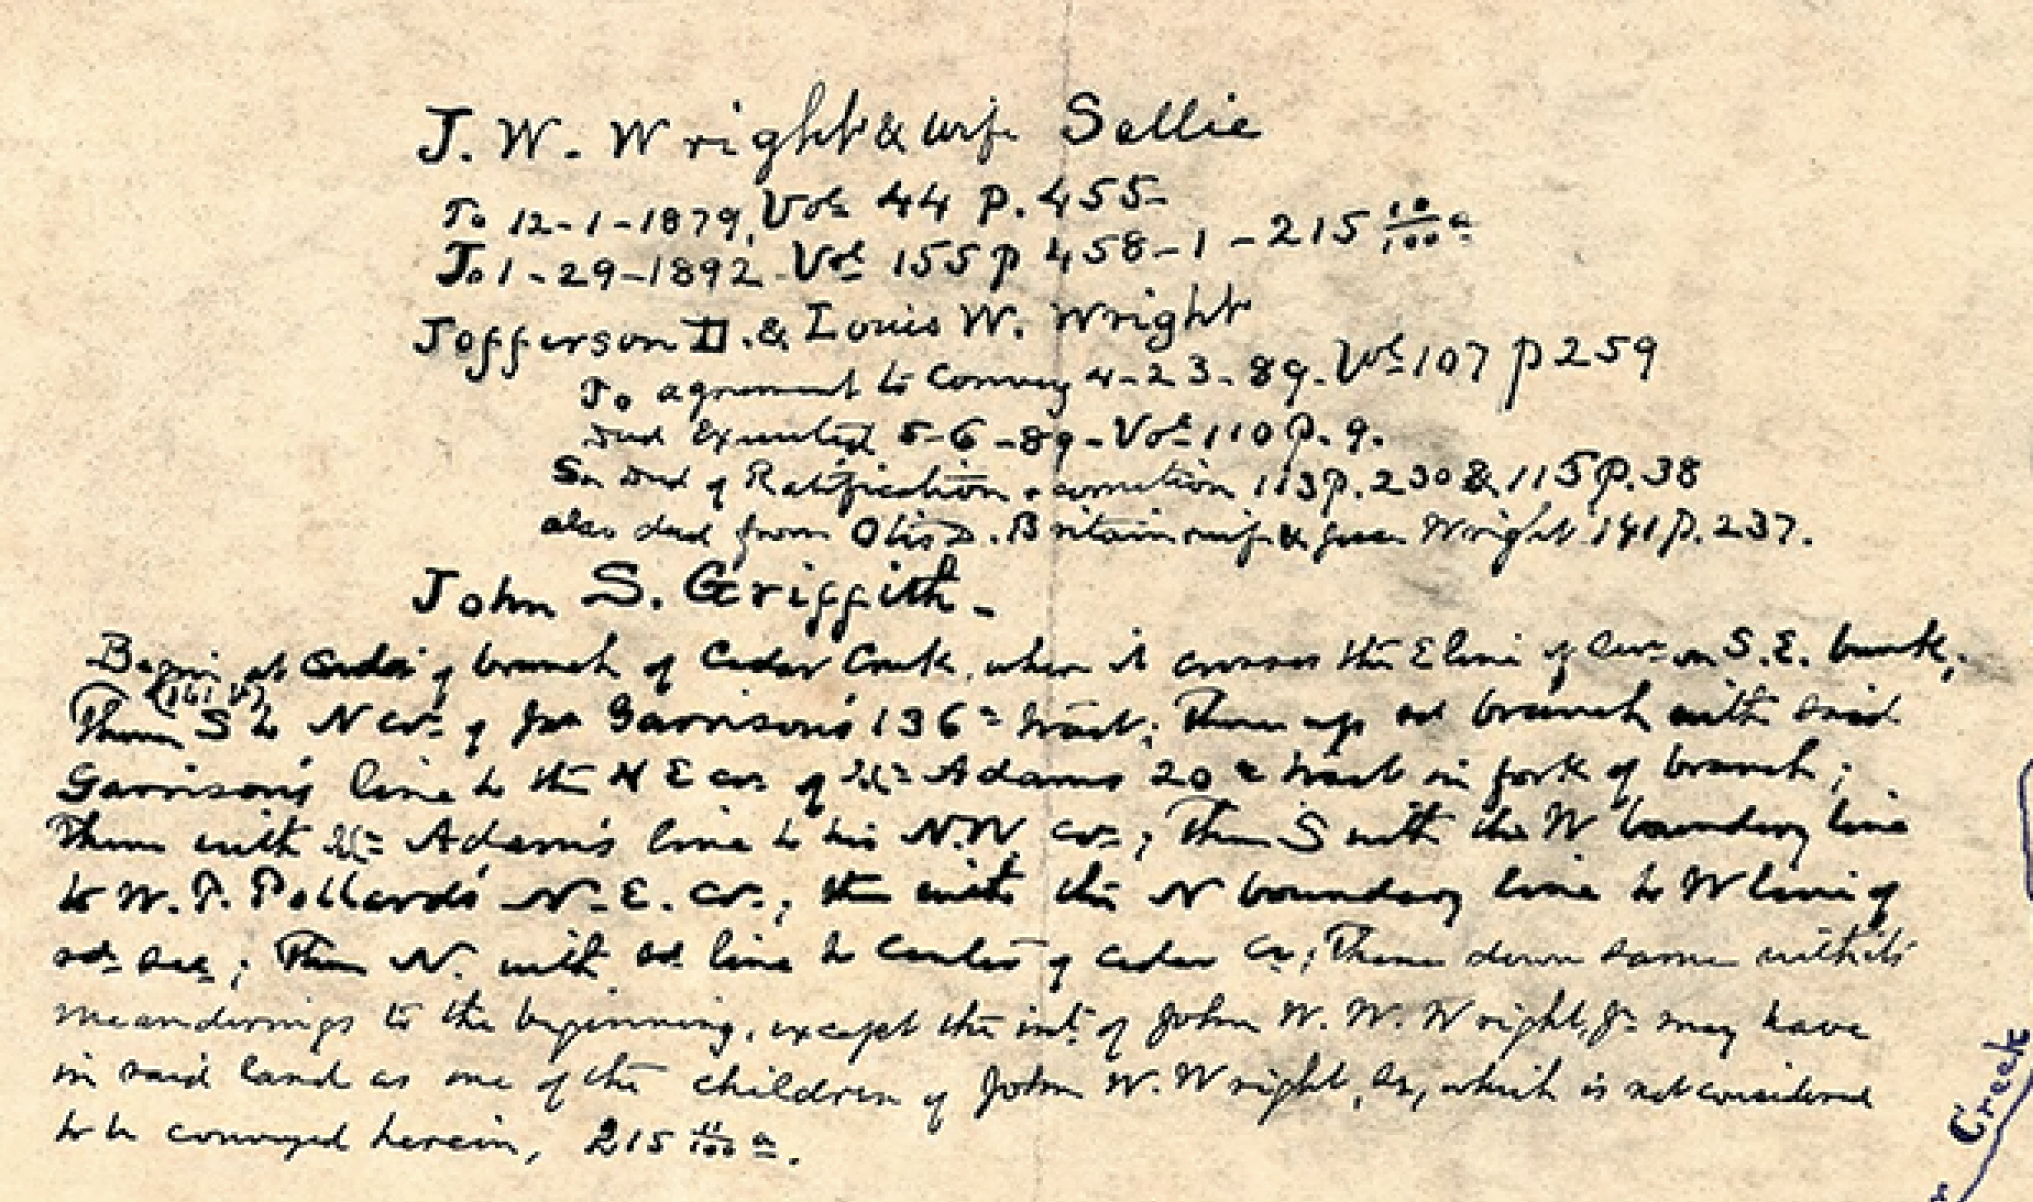 J. W. Wright & wife Sallie
To 12-1-1879, Vol. 44 p. 455-
To 1-29-1892 - Vol 155 p 458-1-215 10/100 a.
Jefferson D. & Louis W. Wright
To agreement to convey 4-23-89. Vol. 107 p 259
Deed executed 5-6-89 - Vol. 110 p. 9.
See Deed of Ratification & correction 113 p. 230 & 115 p. 38
also deed from Otis D. Britain wife Wright 141 p. 237.
John S. Griffith -
Begin at Center of branch of Cedar Creek, where it crosses the E line of Sur. on S.E. bank,
(161 v)
Thence S to N cor. of Jas Garrison's 136 a tract; Thence up sd branch with said
Garrison's line to the N E cor. of Adams 20 a tract in fork of branch;
Thence with Adam's line to his N.W. cor.; Then S with the W boundary line
to W. P. Pollard's N.E. cor.; the with the N boundary line to W line of
sd. sec.; Then N. with sd line to center of Cedar Cr; Thence down same with its
meanderings to the beginning, except the int. of John W. W. Wright, Jr. may have
in said land as one of the children of John W. Wright, Sr, which is not considered
to be conveyed herein, 215 11/100 a.
Creek